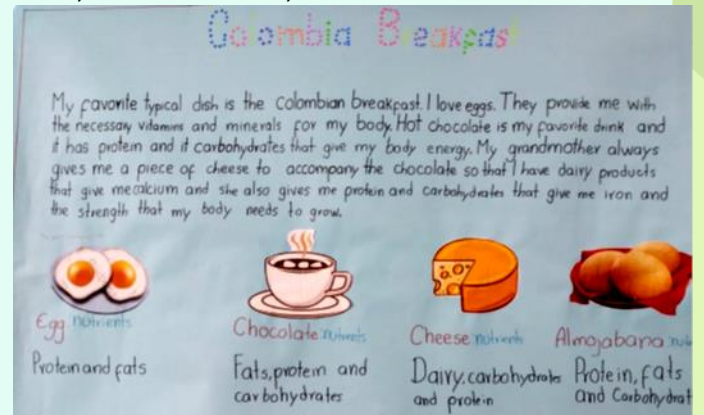 Colombia Breakfast
My favorite typical dish is the Colombian breakfast. I love eggs. They provide me with
the necessary vitamins and minerals for my body. Hot chocolate is my favorite drink and
it has protein and it carbohydrates that give my body energy. My grandmother always
gives me a piece of cheese to accompany the chocolate so that I have dairy products
that give me calcium and she also gives me protein and carbohydrates that give me iron and
the strength that my body needs to grow.
Egg nutrients
Protein and fats
Chocolate nutrients
Fats, protein and
carbohydrates
Cheese nutrients
Dairy, carbohydrates
and protein
Almojabana
Protein, fats
and Carbohydrat